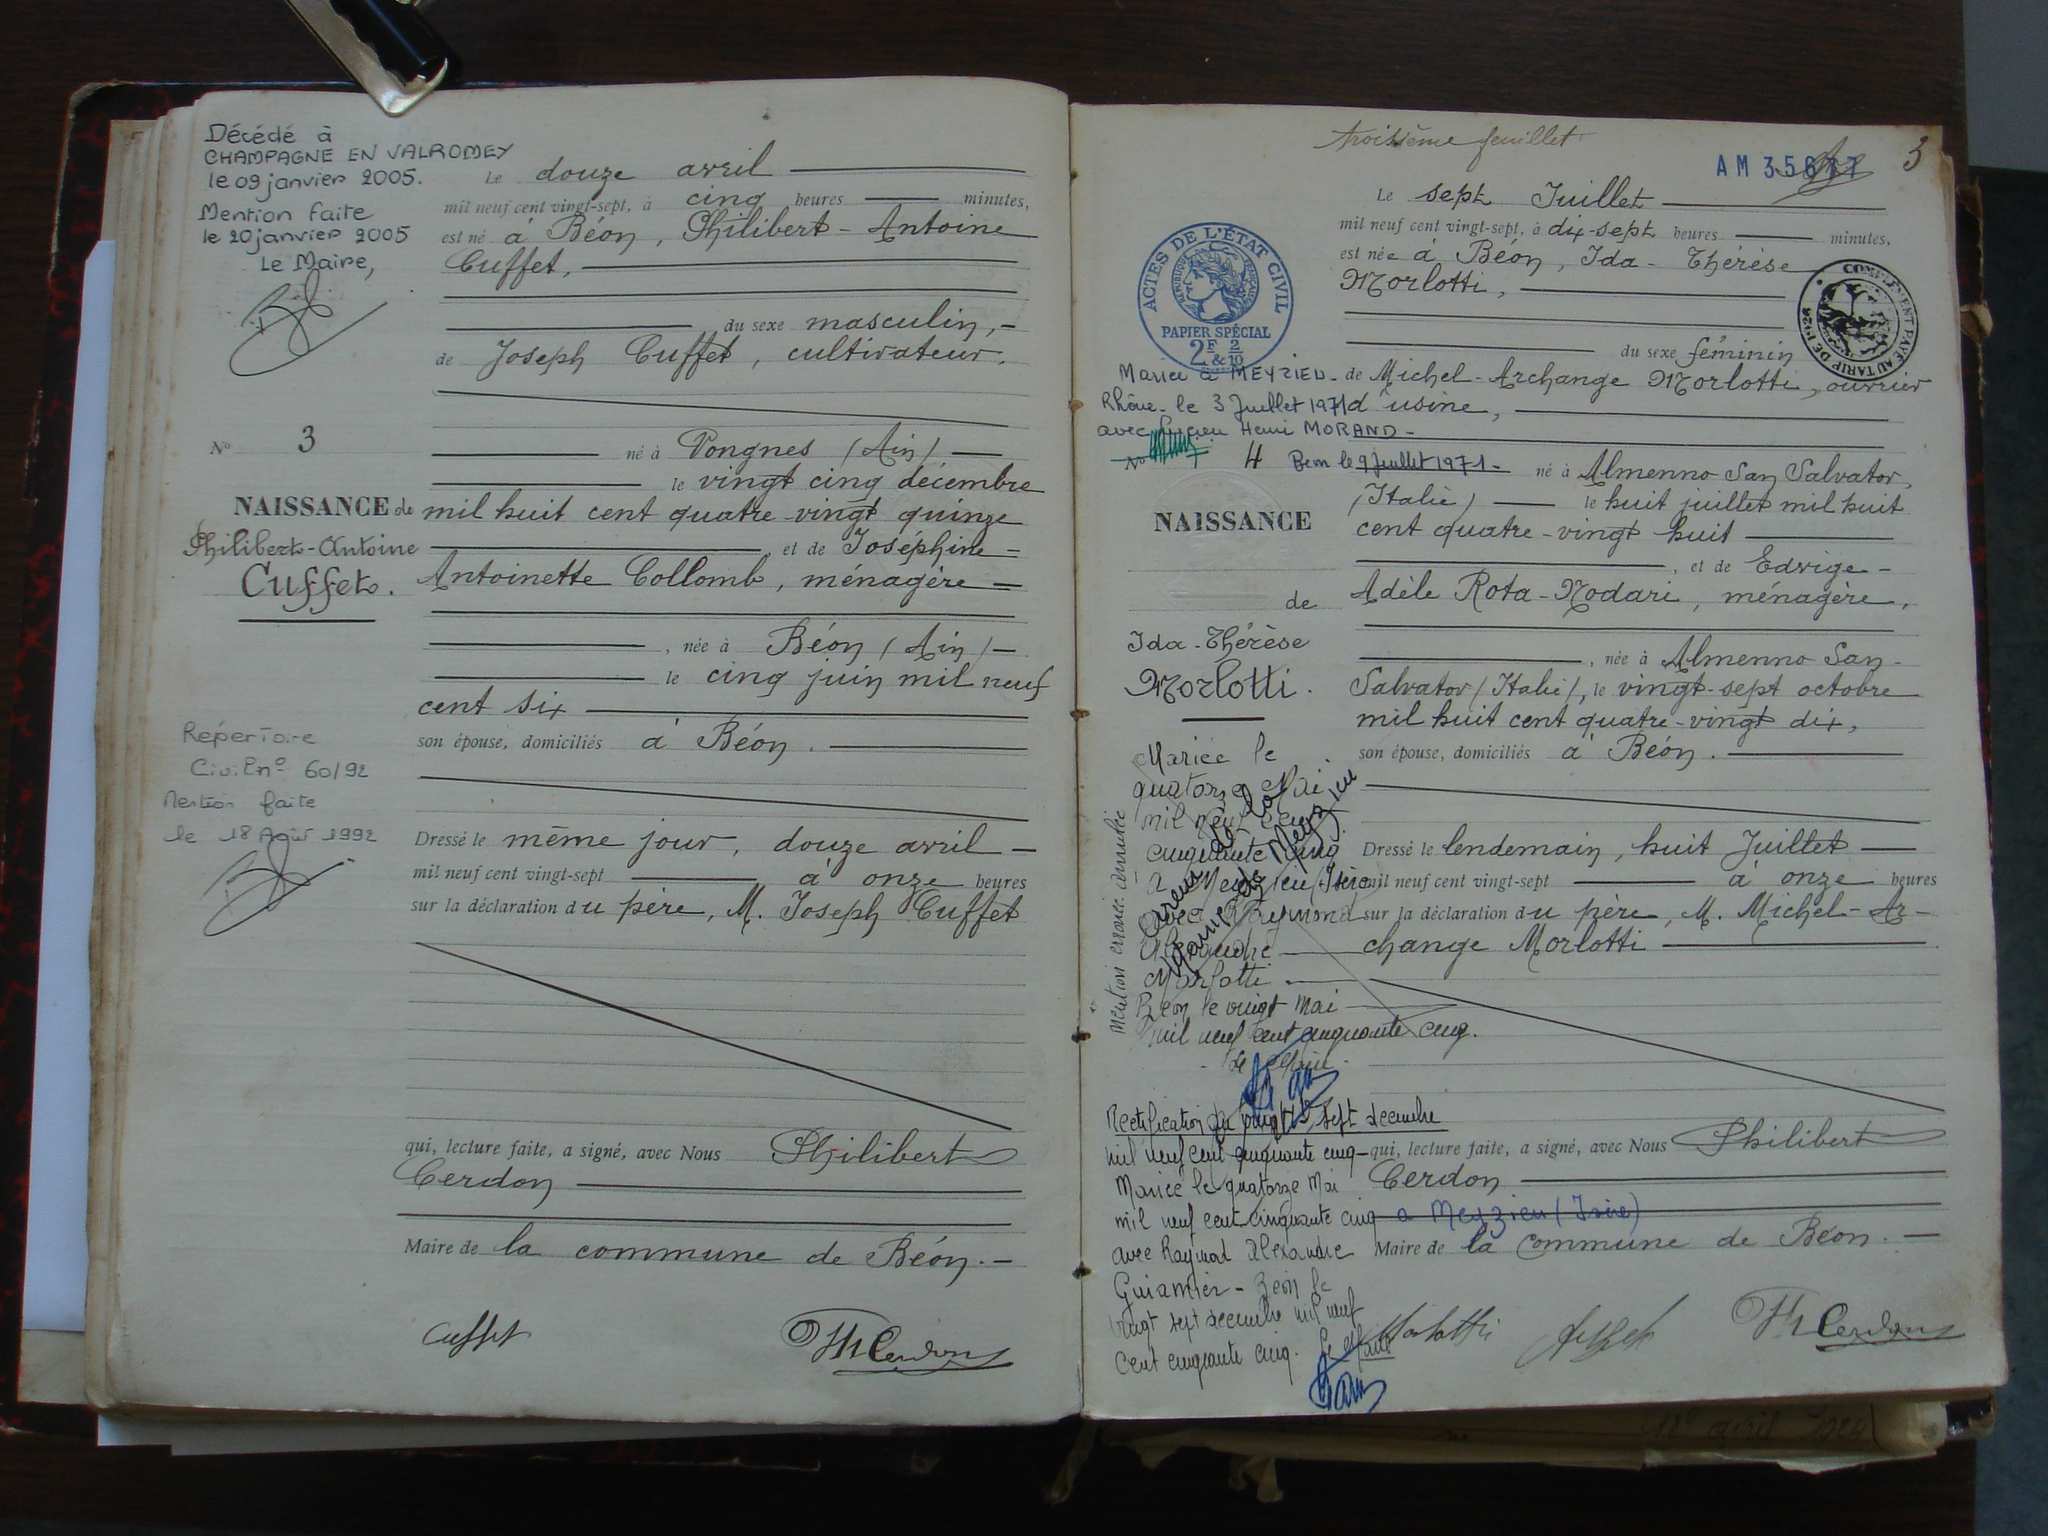 Décédé à
CHAMPAGNE EN VALROMEY
le 09 janvier 2005.
Mention faite
le 20 janvier 2005
Le Maire,
Le douze avril
mil neuf cent vingt-sept, à cinq heures minutes,
est né à Béon, Philibert-Antoine
Cuffet,
du sexe masculin,
de Joseph Cuffet, cultivateur.
No 3
né à Vongnes (Ain)
le vingt cinq décembre
NAISSANCE de mil huit cent quatre vingt quinze
Philibert-Antoine
Cuffet.
et de Joséphine
Antoinette Collomb, ménagère
, née à Béon (Ain)
le cinq juin mil neuf
cent six
son épouse, domiciliés à Béon.
Répertoire
Civil no 60/92
Mention faite
le 18 Août 1992
Dressé le même jour, douze avril
mil neuf cent vingt-sept à onze heures
sur la déclaration du père, M. Joseph Cuffet
qui, lecture faite, a signé, avec Nous Philibert
Cerdon
Maire de la commune de Béon.
Cuffet
Ph Cerdon
troisième feuillet
AM 35677
3
Le sept Juillet
mil neuf cent vingt-sept, à dix-sept heures minutes,
est née à Béon, Ida-Thérèse
Morlotti,
ACTES DE L'ÉTAT CIVIL
RÉPUBLIQUE FRANÇAISE
PAPIER SPÉCIAL
2F & 2/10
COMPLÉMENT PAYÉ AU TARIF DE 1926
du sexe féminin
de Michel-Archange Morlotti, ouvrier
d'usine,
Mariée à MEYZIEU
Rhône le 3 Juillet 1971
avec Lucien Henri MORAND
Béon le 9 Juillet 1971
No 4
né à Almenno San Salvator,
(Italie) le huit juillet mil huit
cent quatre-vingt huit
NAISSANCE
de
Ida-Thérèse
Morlotti.
, et de Edvige-
Adèle Rota-Nodari, ménagère,
, née à Almenno San-
Salvator (Italie), le vingt-sept octobre
mil huit cent quatre-vingt dix,
son épouse, domiciliés à Béon.
Mariée le
quatorze Mai
mil neuf cent
cinquante cinq
à Meyzieu (Isère)
avec Raymond
Alexandre
Morlotti
Béon le vingt Mai
mil neuf cent cinquante cinq.
Le Maire
Mention erronée annulée
Dressé le lendemain, huit Juillet
mil neuf cent vingt-sept à onze heures
sur la déclaration du père, M. Michel-Ar-
change Morlotti
Rectification du vingt sept decembre
mil neuf cent cinquante cinq
Mariée le quatorze Mai
mil neuf cent cinquante cinq à Meyzieu (Isère)
avec Raymond Alexandre
Guiamier - Béon le
vingt sept decembre mil neuf
cent cinquante cinq. Le Maire
qui, lecture faite, a signé, avec Nous Philibert
Cerdon
Maire de la commune de Béon.
Morlotti
Ph Cerdon